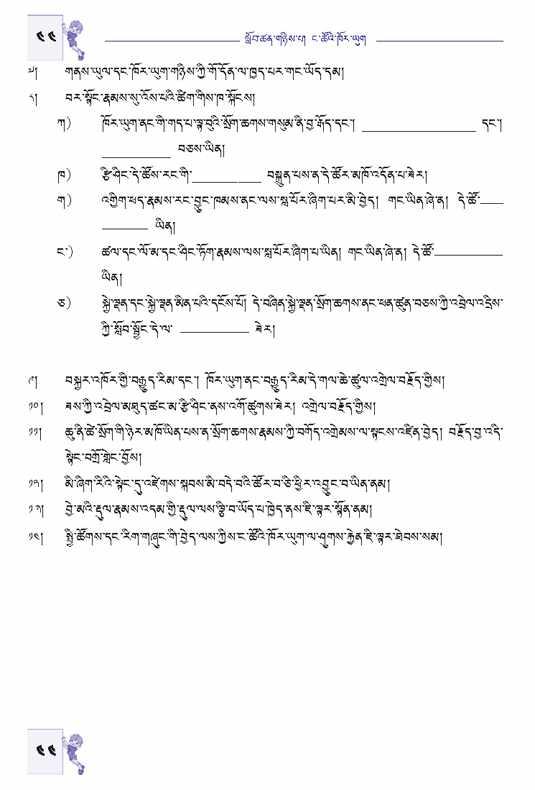 ༤༤ སློབ་ཚན་གཉིས་པ། ང་ཚོའི་ཁོར་ཡུག
༧། གནས་ཡུལ་དང་ཁོར་ཡུག་གཉིས་ཀྱི་གོ་དོན་ལ་ཁྱད་པར་གང་ཡོད་དམ།
༨། བར་སྟོང་རྣམས་སུ་འོས་པའི་ཚིག་གིས་ཁ་སྐོངས།
ཀ) ཁོར་ཡུག་ནང་གི་གད་པ་ལྟ་བུའི་སྲོག་ཆགས་གསུམ་ནི་བྱ་རྒོད་དང་། ____________ དང་།
____________ བཅས་ཡིན།
ཁ) རྩི་ཤིང་དེ་ཚོས་རང་གི་____________ བསྐྲུན་པས་ན་དེ་ཚོར་མཁོ་འདོན་པ་ཟེར།
ག) འགྱིག་ཕད་རྣམས་རང་བྱུང་ཁམས་ནང་ལས་སླ་པོར་ཞིག་པར་མི་བྱེད། གང་ཡིན་ཞེ་ན། དེ་ཚོ་____
____________ ཡིན།
ང་) ཚལ་དང་ལོ་མ་དང་ཤིང་ཏོག་རྣམས་ལས་སླ་པོར་ཞིག་པ་ཡིན། གང་ཡིན་ཞེ་ན། དེ་ཚོ་____________
ཡིན།
ཅ) སྐྱེ་ལྡན་དང་སྐྱེ་ལྡན་མིན་པའི་དངོས་པོ། དེ་བཞིན་སྐྱེ་ལྡན་སྲོག་ཆགས་ནང་ཕན་ཚུན་བཅས་ཀྱི་འབྲེལ་འདྲིས་
ཀྱི་སློབ་སྦྱོང་དེ་ལ་ ____________ ཟེར།
༩། བསྐྱར་འཁོར་གྱི་བརྒྱུད་རིམ་དང་། ཁོར་ཡུག་ནང་བརྒྱུད་རིམ་དེ་གལ་ཆེ་ཚུལ་འགྲེལ་བརྗོད་གྱིས།
༡༠། ཟས་ཀྱི་འབྲེལ་མཐུད་ཚང་མ་རྩི་ཤིང་ནས་འགོ་ཚུགས་ཟེར། འགྲེལ་བརྗོད་གྱིས།
༡༡། ཆུ་ནི་ཚེ་སྲོག་གི་ཉེར་མཁོ་ཡིན་པས་ན་སྲོག་ཆགས་རྣམས་ཀྱི་བགོད་འགྲེམས་ལ་སྟངས་འཛིན་བྱེད། བརྗོད་བྱ་འདི་
སྟེང་བགྲོ་གླེང་བྱོས།
༡༢། མི་ཞིག་རིའི་སྟེང་དུ་འཛེགས་སྐབས་མི་བདེ་བའི་ཚོར་བ་ཅི་ཕྱིར་འབྱུང་བ་ཡིན་ནམ།
༡༣། བྱེ་མའི་རྡུལ་རྣམས་འདམ་གྱི་རྡུལ་ལས་ལྕི་བ་ཡོད་པ་ཁྱེད་ནས་ཇི་ལྟར་སྟོན་ནམ།
༡༤། སྤྱི་ཚོགས་དང་རིག་གཞུང་གི་བྱེད་ལས་ཀྱིས་ང་ཚོའི་ཁོར་ཡུག་ལ་ཤུགས་རྐྱེན་ཇི་ལྟར་ཐེབས་སམ།
༤༤